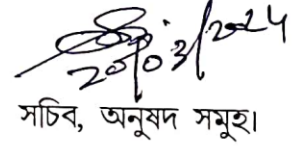 20/03/2024
সচিব, অনুষদ সমুহ।